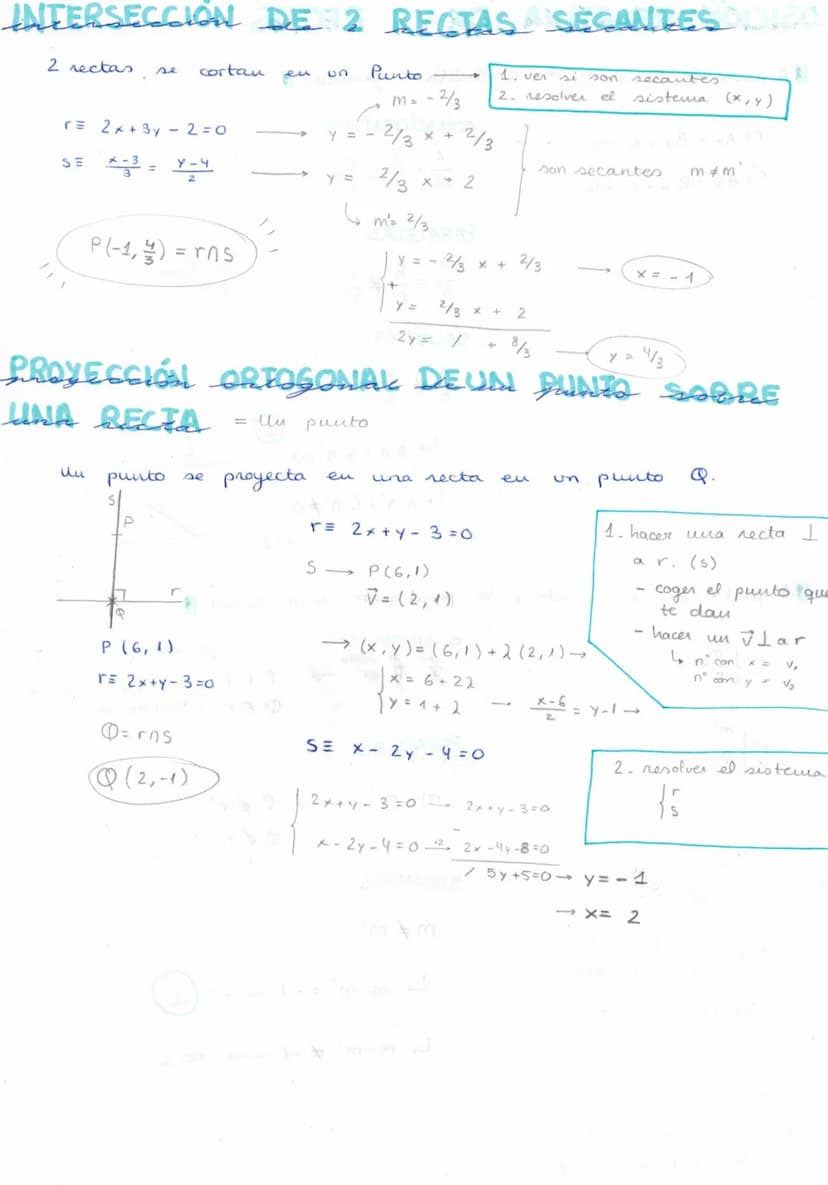 INTERSECCIÓN DE 2 RECTAS SECANTES
2 rectas se cortan en un Punto →
1. ver si son secantes
2. resolver el sistema (x, y)
m = - 2/3
r ≡ 2x + 3y - 2 = 0 → y = - 2/3 x + 2/3
s ≡ x-3/3 = y-4/2 → y = 2/3 x + 2
son secantes m ≠ m'
m' = 2/3
P(-1, 4/3) = r∩s
y = - 2/3 x + 2/3 → x = -1
+
y = 2/3 x + 2
2y = / + 8/3 — y = 4/3
PROYECCIÓN ORTOGONAL DE UN PUNTO SOBRE
UNA RECTA = Un punto
Un punto se proyecta en una recta en un punto Q.
s
P
r
Q
P (6, 1)
r ≡ 2x+y-3=0
Q = r∩s
Q (2, -1)
r ≡ 2x+y-3=0
S → P(6,1)
v⃗ = (2, 1)
→ (x, y) = (6, 1) + λ (2, 1) →
x = 6 + 2λ
y = 1 + λ → x-6/2 = y-1 →
S ≡ x - 2y - 4 = 0
2x+y-3=0 → 2x+y-3=0
-
x-2y-4=0 ·2→ 2x-4y-8=0
/ 5y+5=0 → y = -1
→ x = 2
1. hacer una recta ⊥
a r. (s)
- coger el punto que
te dan
- hacer un v⃗ ⊥ a r
↳ nº con x = v₁
nº con y = v₂
2. resolver el sistema
r
s